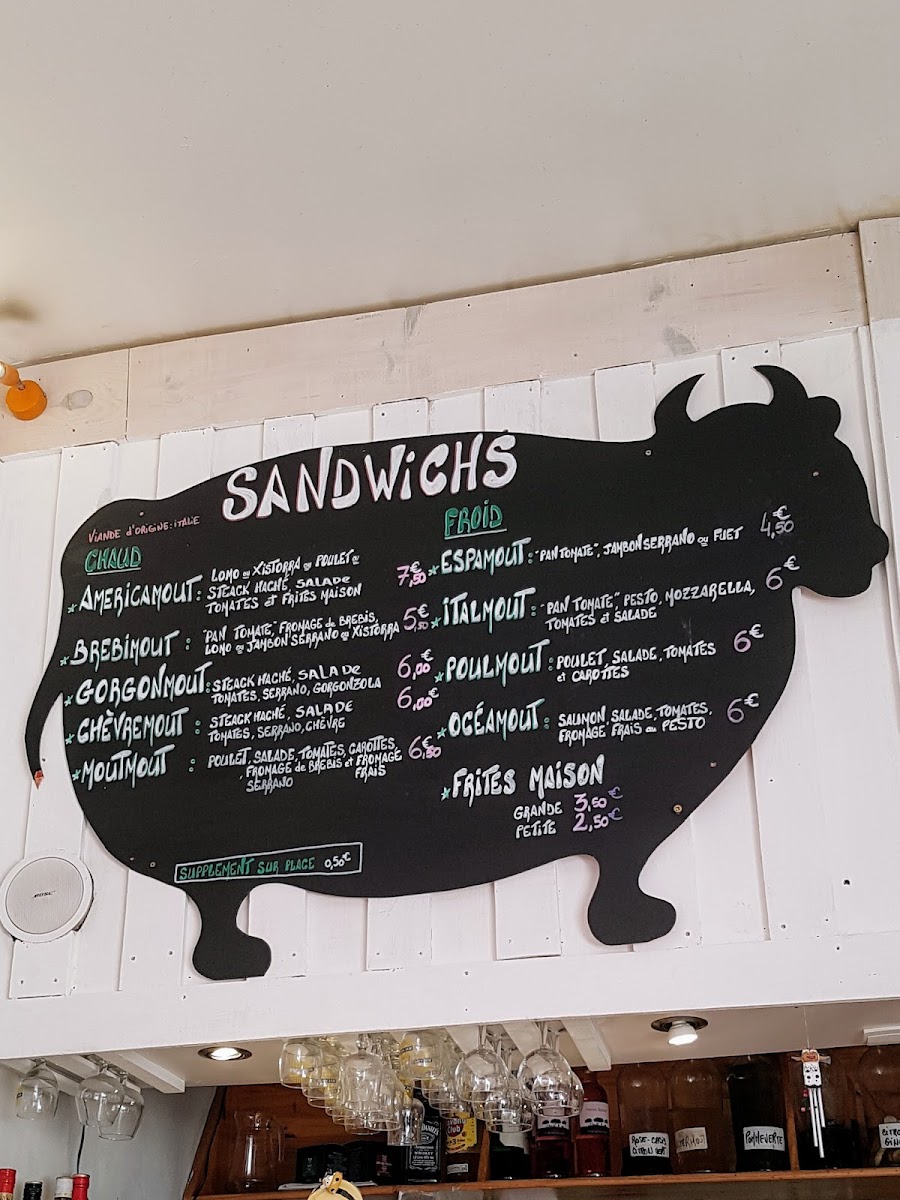 SANDWiCHS
ViANDE d'ORiGiNE: iTALiE
CHAUD
★ AMERICAMOUT: LOMO ou XISTORRA ou POULET ou
STEACK HACHÉ, SALADE
TOMATES et FRITES MAISON
7€,50
★ BREBIMOUT : "PAN TOMATE", FROMAGE de BREBIS,
LOMO ou JAMBON SERRANO ou XISTORRA
5€,50
★ GORGONMOUT: STEACK HACHÉ, SALADE
TOMATES, SERRANO, GORGONZOLA
6,00€
★ CHÈVREMOUT : STEACK HACHÉ, SALADE
TOMATES, SERRANO, CHÈVRE
6,00€
★ MOUTMOUT : POULET, SALADE, TOMATES, CAROTTES,
FROMAGE de BREBIS et FROMAGE
FRAIS
SERRANO
6€,50
FROID
★ ESPAMOUT: "PAN TOMATE", JAMBON SERRANO ou FUET
4€,50
★ ITALMOUT: "PAN TOMATE", PESTO, MOZZARELLA,
TOMATES et SALADE
6€
★ POULMOUT: POULET, SALADE, TOMATES
et CAROTTES
6€
★ OCÉAMOUT: SAUMON, SALADE, TOMATES,
FROMAGE FRAIS au PESTO
6€
★ FRITES MAISON
GRANDE 3,50€
PETITE 2,50€
SUPPLEMENT SUR PLACE 0,50€
BOSE